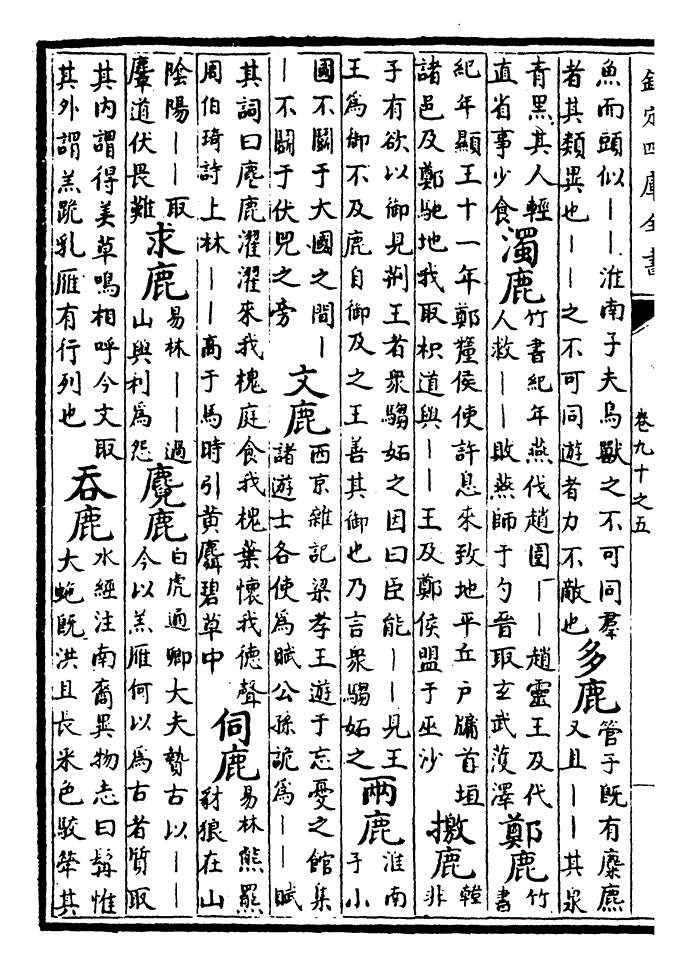 欽定四庫全書 卷九十之五
魚而頭似——淮南子夫鳥獸之不可同羣
者其類異也——之不可同遊者力不敵也
多鹿
管子既有麋麃
又且——其泉
青黑其人輕
直省事少食
濁鹿
竹書紀年燕伐趙圍——趙靈王及代
人救——敗燕師于勺晉取玄武濩澤
鄭鹿
竹
書
紀年顯王十一年鄭釐侯使許息來致地平丘戶牖首垣
諸邑及鄭馳地我取枳道與——王及鄭侯盟于巫沙
撽鹿
韓
非
子有欲以御見荆王者衆騶妬之因曰臣能——見王
王為御不及鹿自御及之王善其御也乃言衆騶妬之
兩鹿
淮南
于小
國不鬭于大國之間—
—不鬭于伏兕之旁
文鹿
西京雜記梁孝王遊于忘憂之館集
諸遊士各使為賦公孫詭為——賦
其詞曰麀鹿濯濯來我槐庭食我槐葉懷我德聲
周伯琦詩上林——高于馬時引黄麛碧草中
伺鹿
易林熊羆
豺狼在山
陰陽——取
麞道伏畏難
求鹿
易林——過
山與利為怨
麑鹿
白虎通卿大夫贄古以——
今以羔雁何以為古者質取
其内謂得美草鳴相呼今文取
其外謂羔跪乳雁有行列也
吞鹿
水經注南裔異物志曰髯惟
大虵既洪且長采色駁犖其